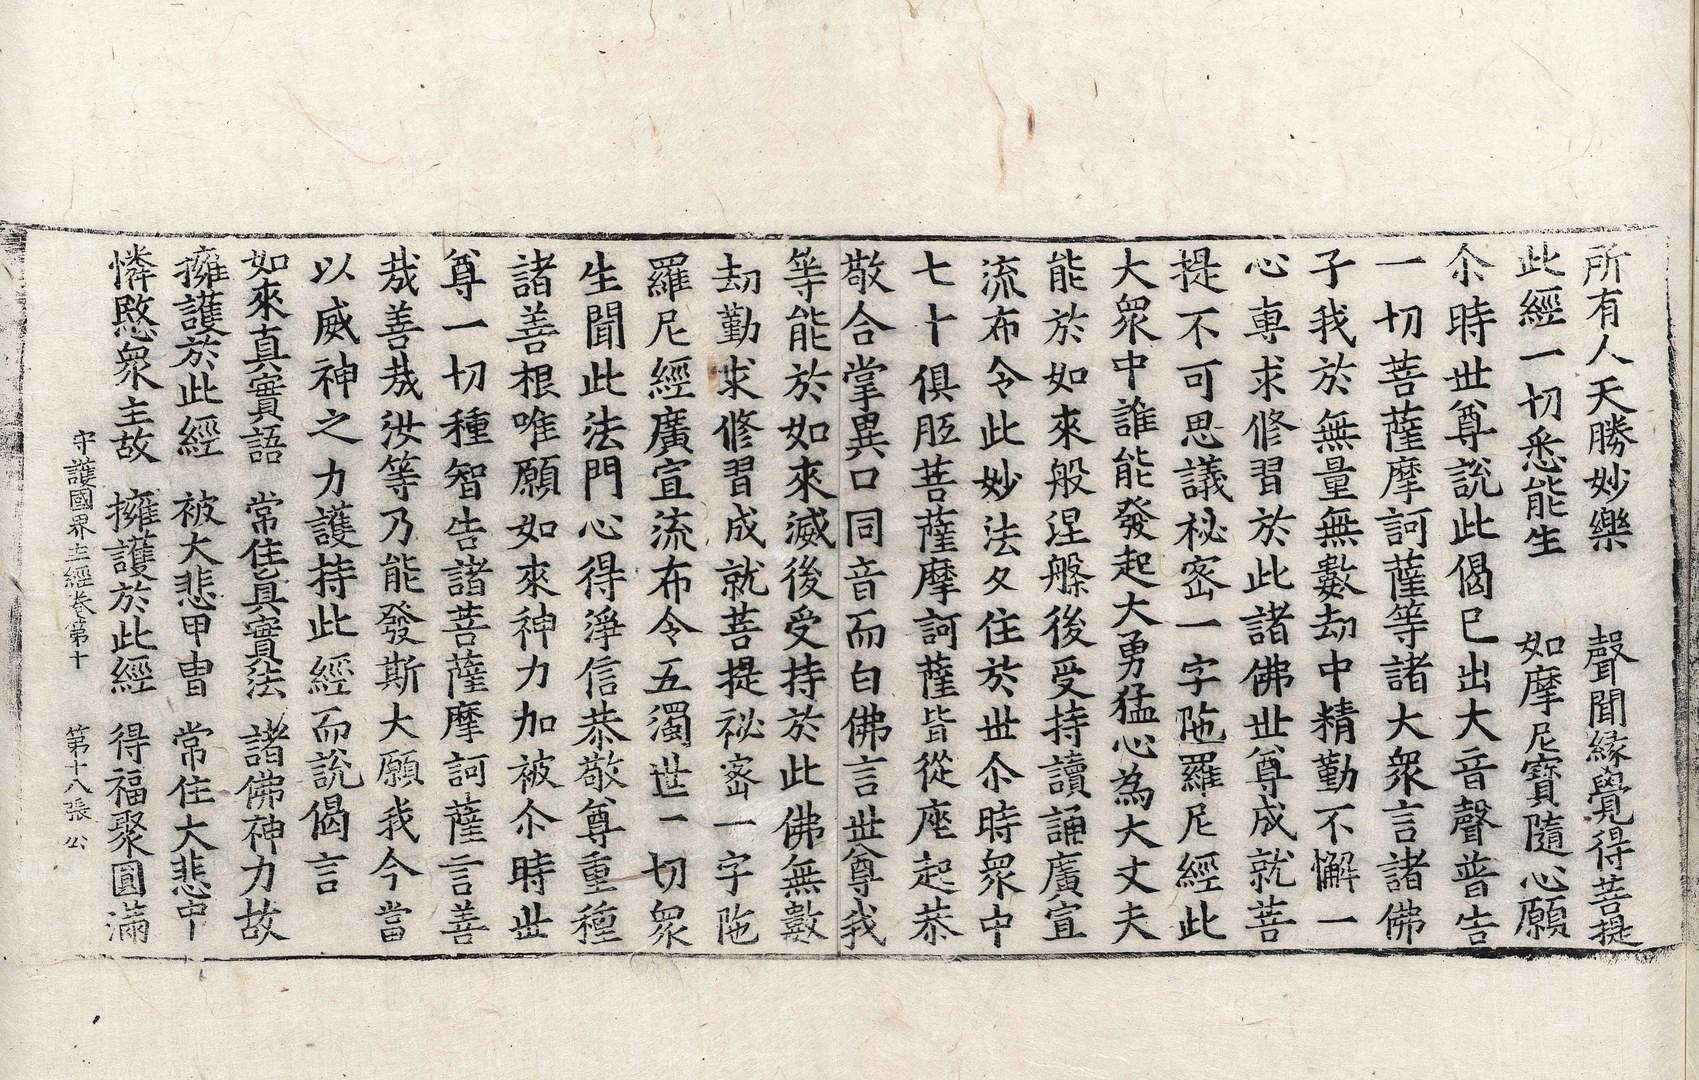 所有人天勝妙樂　聲聞緣覺得菩提
此經一切悉能生　如摩尼寶隨心願
尒時世尊說此偈已出大音聲普告
一切菩薩摩訶薩等諸大衆言諸佛
子我於無量無數劫中精勤不懈一
心專求修習於此諸佛世尊成就菩
提不可思議秘密一字陁羅尼經此
大衆中誰能發起大勇猛心為大丈夫
能於如來般涅槃後受持讀誦廣宣
流布令此妙法久住於世尒時衆中
七十俱胝菩薩摩訶薩皆從座起恭
敬合掌異口同音而白佛言世尊我
等能於如來滅後受持於此佛無數
劫勤求修習成就菩提祕密一字陁
羅尼經廣宣流布令五濁世一切衆
生聞此法門心得淨信恭敬尊重種
諸善根唯願如來神力加被尒時世
尊一切種智告諸菩薩摩訶薩言善
哉善哉汝等乃能發斯大願我今當
以威神之力護持此經而說偈言
如來真實語　常住真實法　諸佛神力故
擁護於此經　被大悲甲冑　常住大悲中
憐愍衆主故　擁護於此經　得福聚圓滿
守護國界主經卷第十　第十八張　公